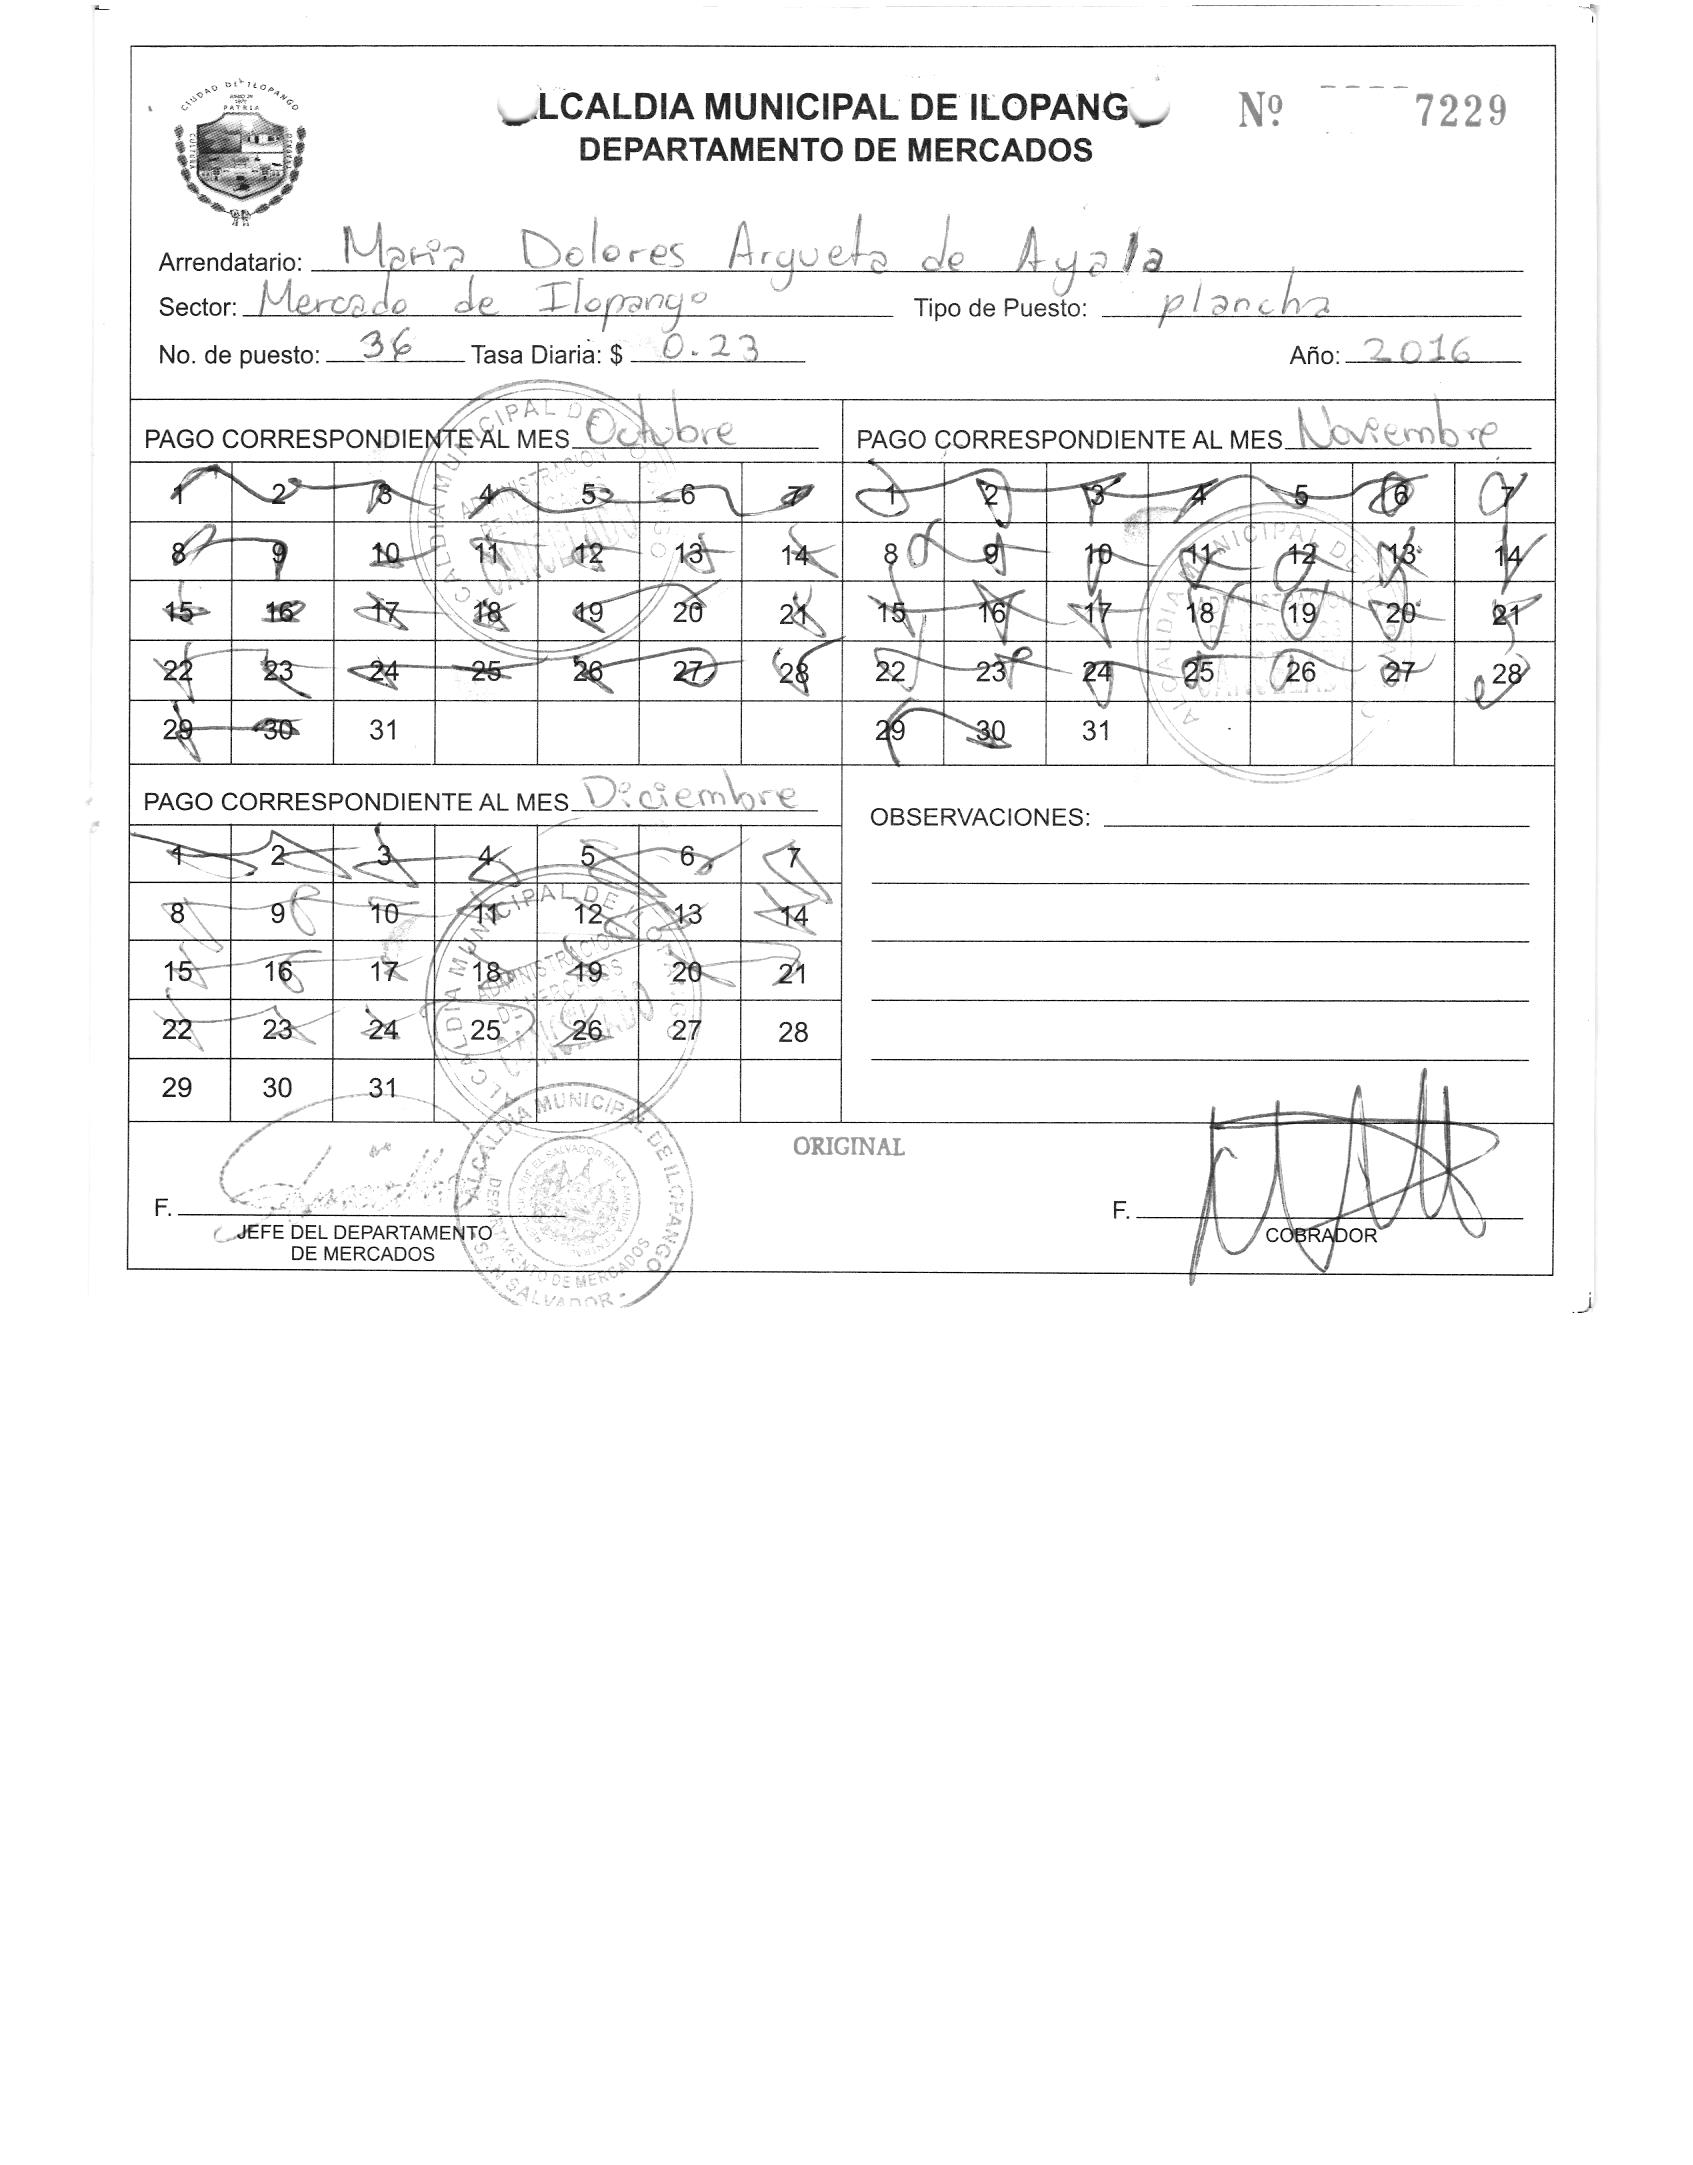 CIUDAD DE ILOPANGO
PATRIA
CULTURA
LCALDIA MUNICIPAL DE ILOPANG
Nº 7229
DEPARTAMENTO DE MERCADOS
Arrendatario: Maria Dolores Argueta de Ayala
Sector: Mercado de Ilopango Tipo de Puesto: plancha
No. de puesto: 36 Tasa Diaria: $ 0.23 Año: 2016
PAGO CORRESPONDIENTE AL MES Octubre
1 2 3 4 5 6 7
8 9 10 11 12 13 14
15 16 17 18 19 20 21
22 23 24 25 26 27 28
29 30 31
PAGO CORRESPONDIENTE AL MES Noviembre
1 2 3 4 5 6 7
8 9 10 11 12 13 14
15 16 17 18 19 20 21
22 23 24 25 26 27 28
29 30 31
PAGO CORRESPONDIENTE AL MES Diciembre
1 2 3 4 5 6 7
8 9 10 11 12 13 14
15 16 17 18 19 20 21
22 23 24 25 26 27 28
29 30 31
ALCALDIA MUNICIPAL DE ILOPANGO
ADMINISTRACION
DE MERCADOS
CANCELADO
OBSERVACIONES:
ORIGINAL
F.
JEFE DEL DEPARTAMENTO
DE MERCADOS
ALCALDIA MUNICIPAL DE ILOPANGO
DEPARTAMENTO DE MERCADOS
SAN SALVADOR
F.
COBRADOR